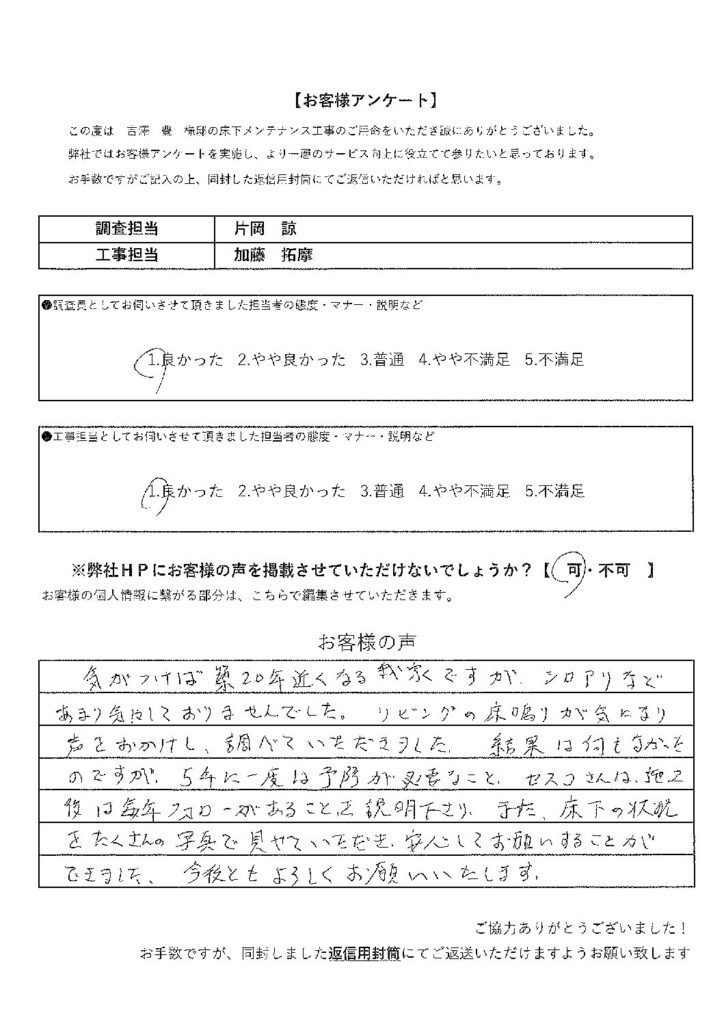 【お客様アンケート】
この度は 吉澤 豊 様邸の床下メンテナンス工事のご用命をいただき誠にありがとうございました。
弊社ではお客様アンケートを実施し、より一層のサービス向上に役立てて参りたいと思っております。
お手数ですがご記入の上、同封した返信用封筒にてご返信いただければと思います。
調査担当 片岡 諒
工事担当 加藤 拓摩
●調査員としてお伺いさせて頂きました担当者の態度・マナー・説明など
1.良かった 2.やや良かった 3.普通 4.やや不満足 5.不満足
●工事担当としてお伺いさせて頂きました担当者の態度・マナー・説明など
1.良かった 2.やや良かった 3.普通 4.やや不満足 5.不満足
※弊社ＨＰにお客様の声を掲載させていただけないでしょうか？【 可・不可 】
お客様の個人情報に繋がる部分は、こちらで編集させていただきます。
お客様の声
気がつけば築20年近くなる我家ですが、シロアリなど
あまり気にしておりませんでした。リビングの床鳴りが気になり
声をおかけし、調べていただきました。結果は何もなかった
のですが、5年に一度は予防が必要なこと、セスコさんは、施工
後は毎年フォローがあることを説明下さり、また、床下の状況
をたくさんの写真で見せていただき、安心してお願いすることが
できました、今後ともよろしくお願いいたします。
ご協力ありがとうございました！
お手数ですが、同封しました返信用封筒にてご返送いただけますようお願い致します